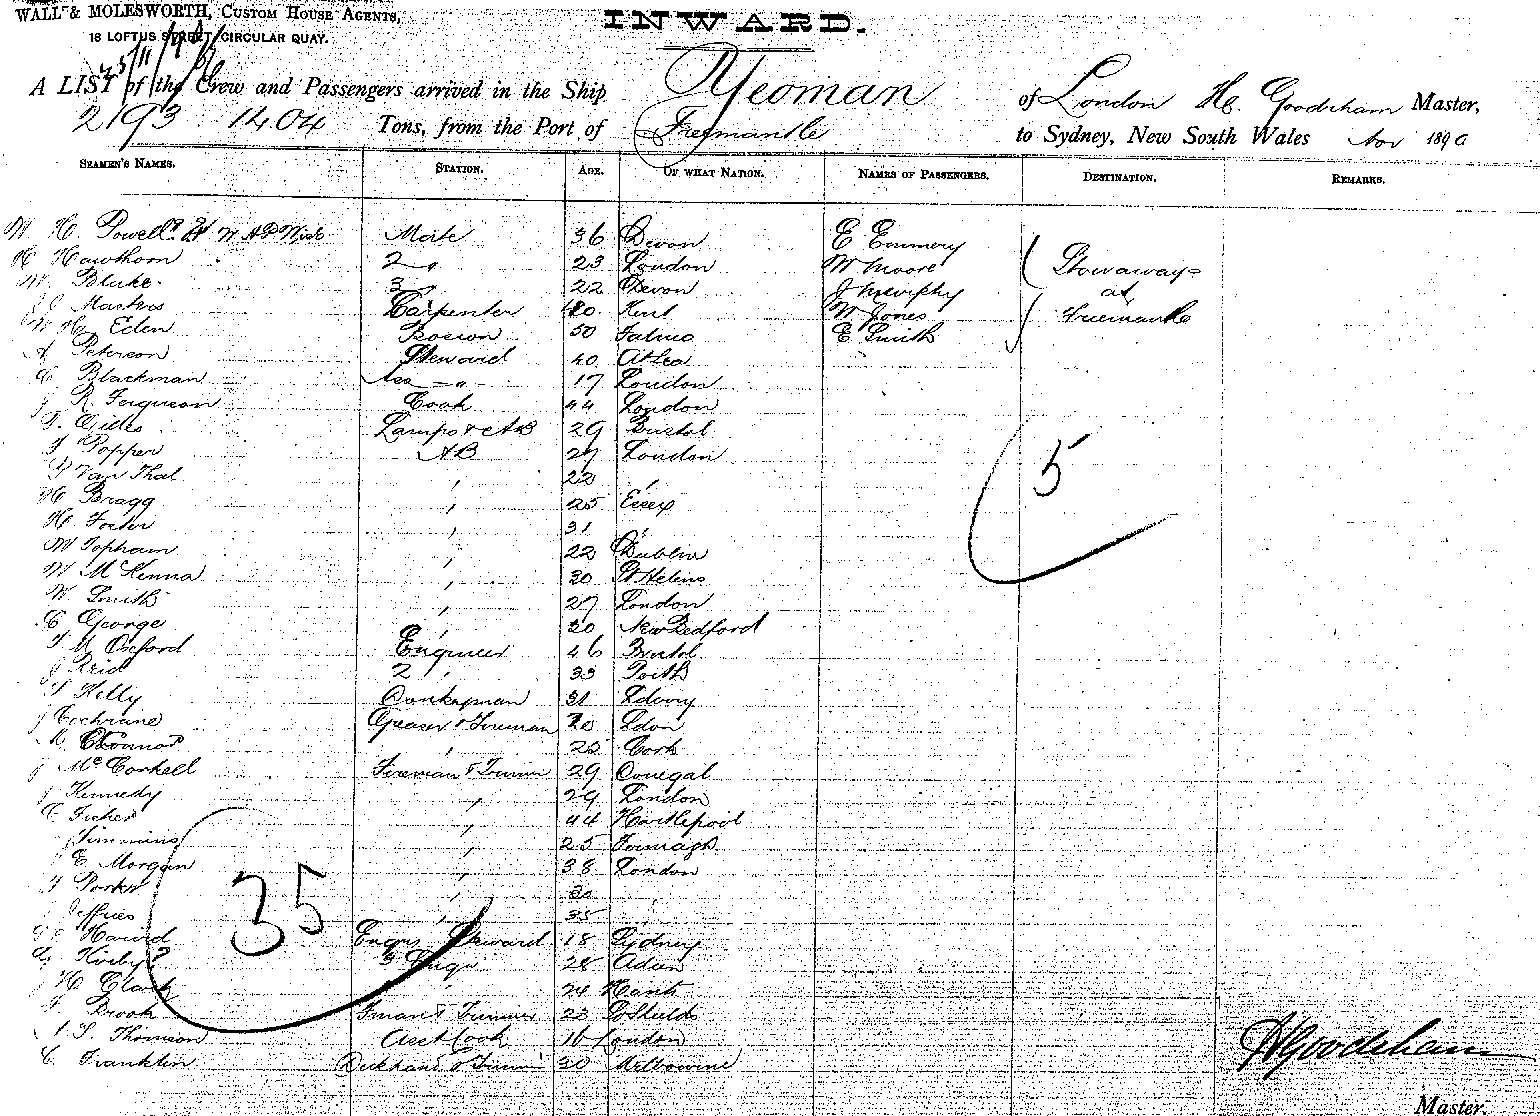 WALL & MOLESWORTH, CUSTOM HOUSE AGENTS,
18 LOFTUS STREET, CIRCULAR QUAY.
INWARD.
A LIST of the Crew and Passengers arrived in the Ship Yeoman of London H. Goodeham Master,
2193 1404 Tons, from the Port of Freemantle to Sydney, New South Wales Nov 1890
SEAMEN'S NAMES. STATION. AGE. OF WHAT NATION. NAMES OF PASSENGERS. DESTINATION. REMARKS.
W H Powell Mate 36 Devon E Emmery
H Hawthorn 2 " 23 London W Moore Stowaways
W Bluke 3 22 Devon J Murphy at
Masters Carpenter 40 Kent W Jones Freemantle
W H Eden Boson 50 E Smith
A Peterson Steward 40 At Sea
C Blackman Ass " 17 London
J R Ferguson Cook 44 London
Lamps & AB 29 Bristol
T Popper AB 27 London
Van Thal 22
H Bragg 25 Essex
H Foster 31
W Topham 22 Dublin
W McKenna 30 St Helens
W Smith 27 London
C George 30 New Bedford
T M Oxford Engineer 46 Bristol
J Reid 2 " 33 Perth
T Kelly Donkeyman 31
J Cochrane Greaser & Fireman Ldon
O'Connor 25 Cork
J McCorkell Fireman & Trimmer 29 Donegal
J Kennedy 29 London
C Ficher 44 Hartlepool
Simmins 25
E Morgan 38 London
T Porter 30
Jeffries 35
Steward 18 Sydney
3 Engr 28 Aden
H Clark 24 Hants
J Brook Fman & Trimmer 23
S Thomson Asst Cook 16 London
C Franklin Deckhand & Trimmer 30 Melbourne
5
35
H Goodeham
Master.